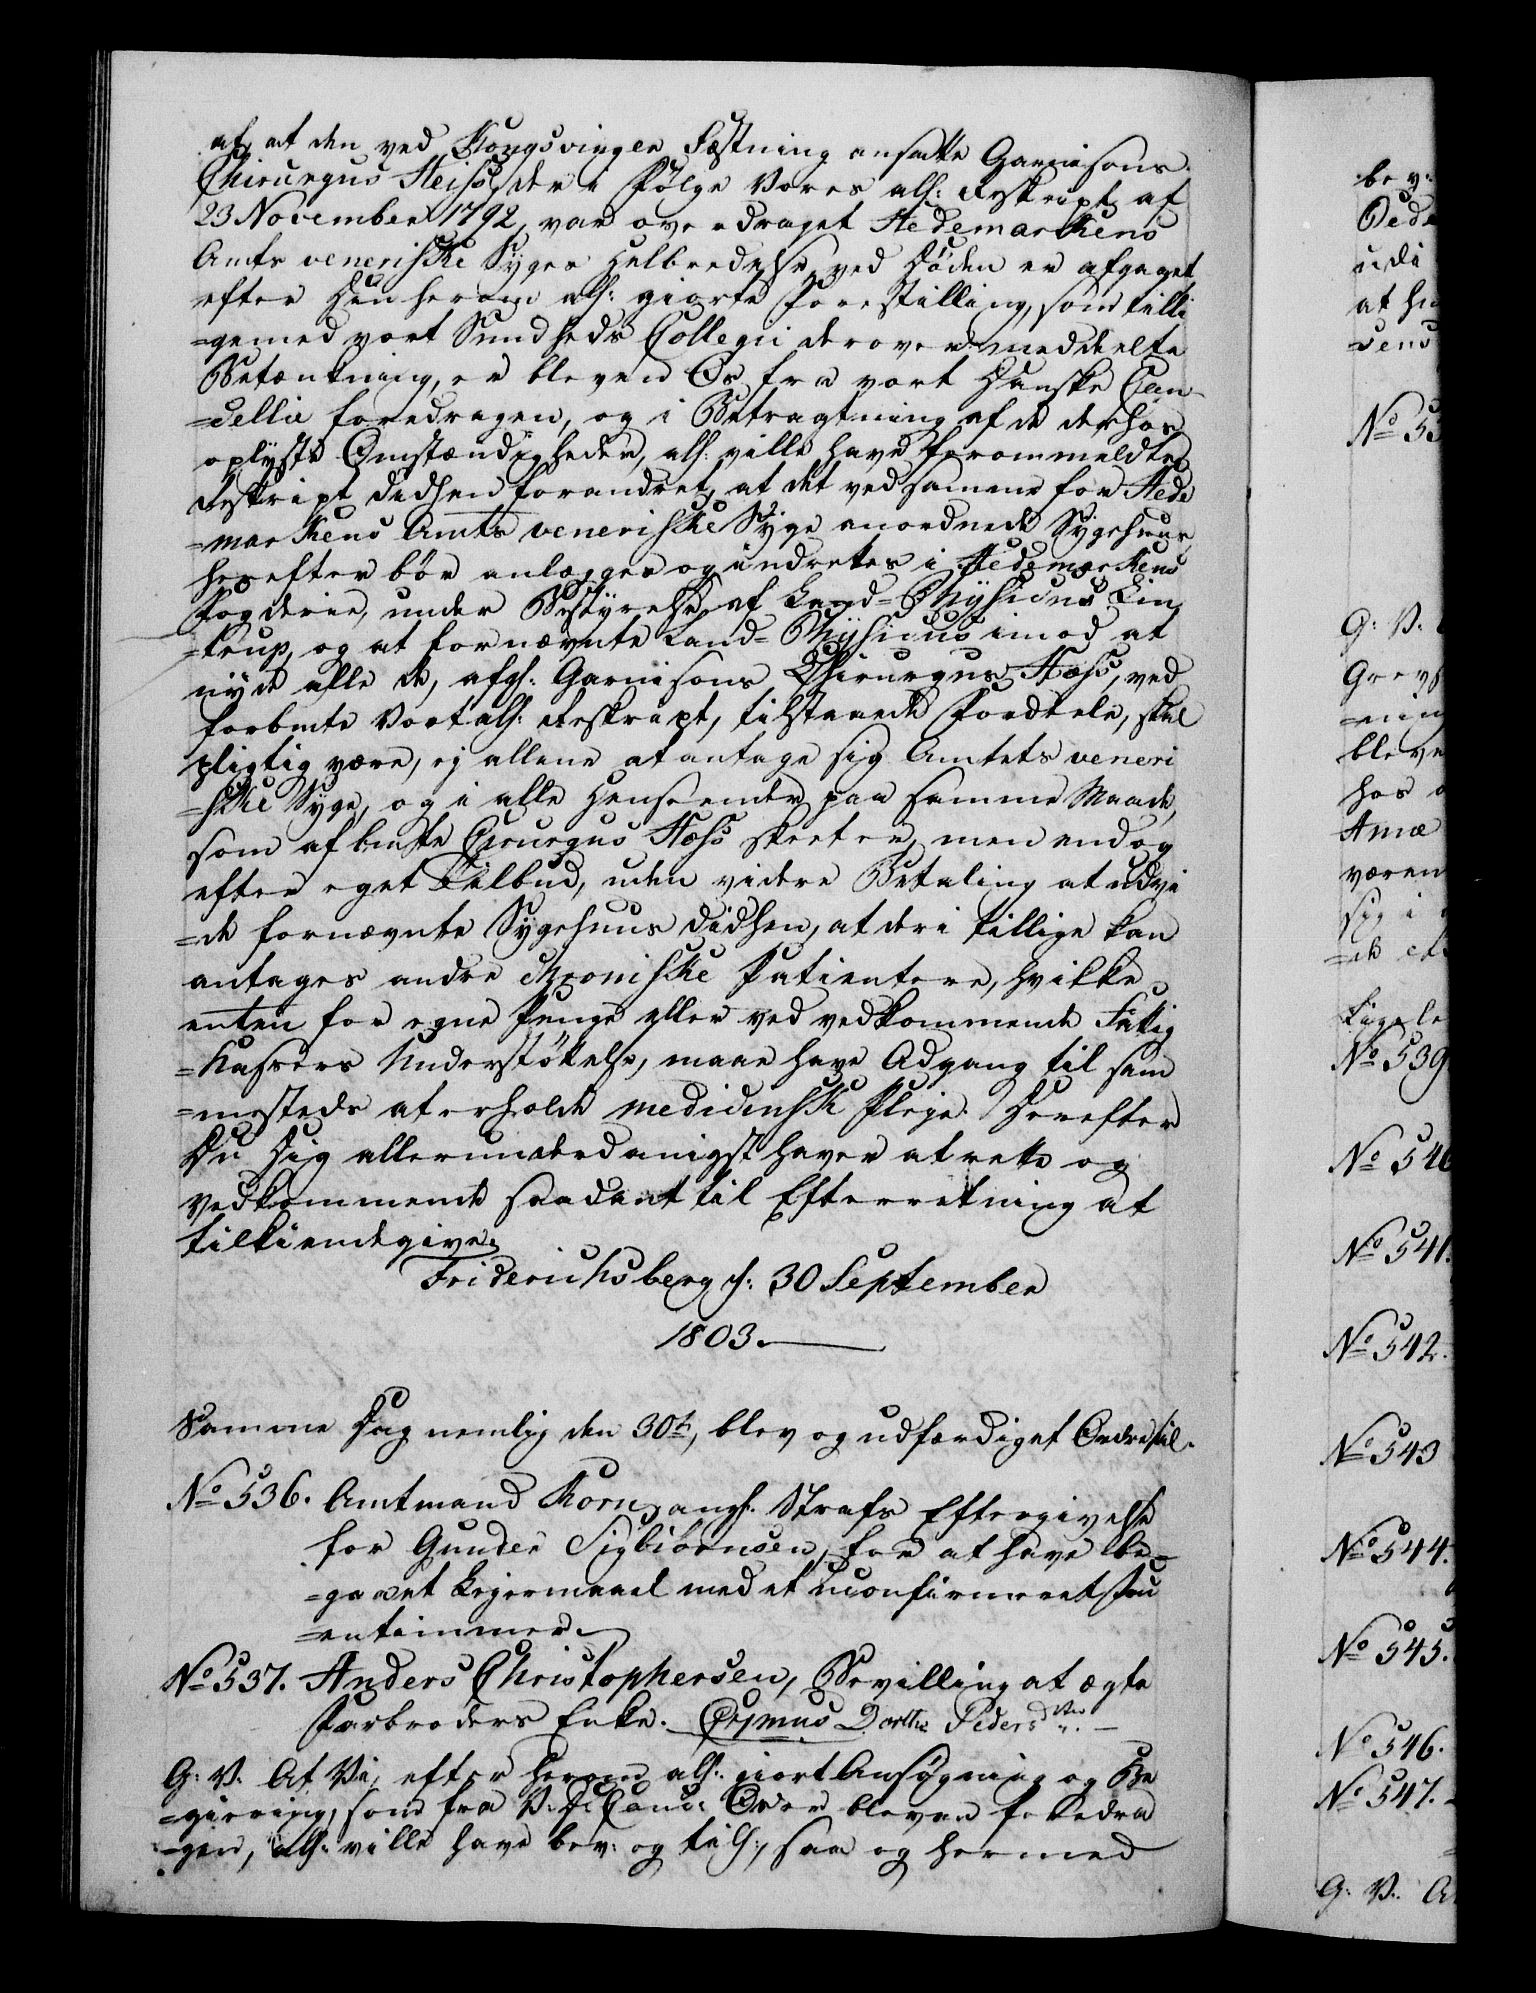 af, at den ved Kongsvinger Fæstning ansatte Garnisons
Chirurgus Heiss, der i Følge Vores alh: Reskript af
23 November 1792, var overdraget Hedemarkens
Amts veneriske Syges Helbredelse, ved Døden er afgaaet
efter Din herom alh: giorte Forestilling, som tilli
=gemed vort Sundheds Collegii derover meddeelte
Betænkning, er bleven Os fra vort Danske Can
=cellie foredragen, og i Betragtning af de derhos
oplyste Omstændigheder, alh: ville have forommeldte
Reskript didhen forandret, at det ved samme for Hede
=markens Amts veneriske Syge anordnede Sygehuus
herefter bør anlægges og indrettes i Hedemarkens
Fogderie, under Bestyrelse af Land=Physicus Lin
=trup, og at fornævnte Land=Physicus imod at
nyde alle de, afgl: Garnisons Chirurgus Hæss, ved
forbmte Vort alh: Reskript, tilstaaede Fordeele, skal
pligtig være, ej allene at antage sig Amtets veneri
=ske Syge, og i alle Henseender paa samme Maade,
som af bmte Chirurgus Hæss skeet er, men endog
efter eget Tilbud, uden videre Betaling at udvi
=de fornævnte Sygehuus didhen, at deri tillige kan
antages andre chroniske Patientere, hvilke
enten for egne Penge eller ved vedkommende Fattig
=Kassers Understøttelse, maae have Adgang til sam
=mesteds at erholde medicinsk Pleje. / Herefter
Du Dig allerunderdanigst haver at rette og
vedkommende saadant til Efterretning at
tilkiendegive.
Friderichsberg d: 30 September
1803.
Samme Dag nemlig den 30te, blev og udfærdiget Ordre til.
No 536. Amtmand Korn, angl: Strafs Eftergivelse
for Gunder Sigbiørnsen, for at have be
=gaaet Lejermaal med et uconfirmeret Fru
=entimmer.
No 537. Anders Christophersen, Bevilling at ægte
Farbroders Enke. Dorthe Pedersdtter
G: V: At Vi, efter herom alh: giort Ansøgning og Be
=giering, som fra V: D: Canc: Os er bleven foredra
=gen, alh: ville have bev: og till:, saa og hermed
bev:
udi
at
No 53
G: V:
bleve
hos
væren
sig i
No 539
No 540
No 541.
No 542.
No 543
No 544.
No 545.
No 546.
No 547.
G: V: